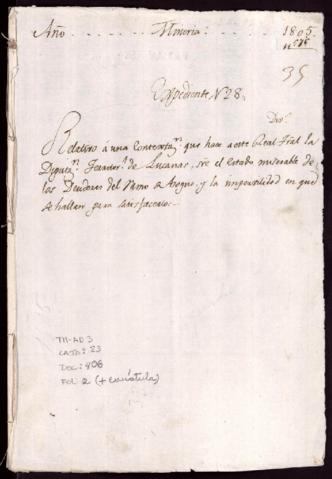 Año . . . . Mineria . . . . 1805
35
Expediente N 28.
Relativo á una Contestan. que hace a este Real Tral la
Diputn. Territorl. de Lucanas, sre el estado miserable de
los Deudores del Ramo de Azogue, y la imposivilidad en que
se hallan para satisfacerlos.
TM-AD 3
CAJA: 23
DOC: 406
Fol: 2 (+ carátula)